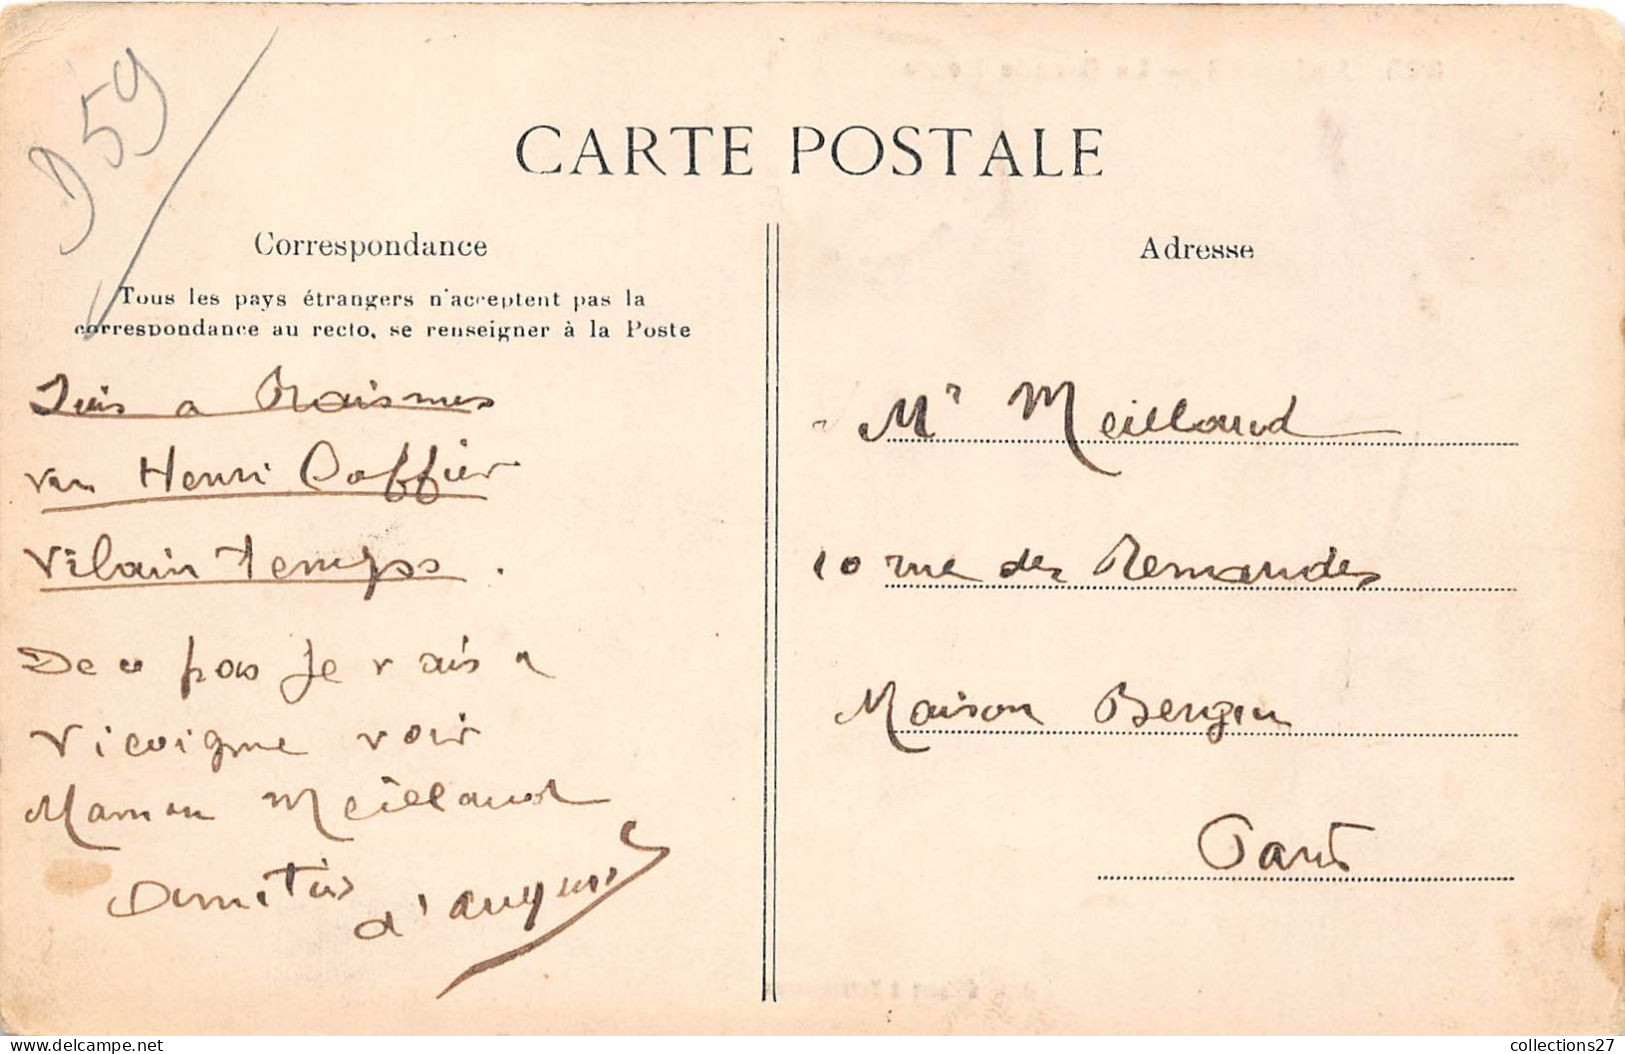 D 59
CARTE POSTALE
Correspondance
Tous les pays étrangers n'acceptent pas la
correspondance au recto, se renseigner à la Poste
Suis a Raismes
Henri Caffier
Vilain temps.
De la pas je vais a
Vicoigne voir
Maman Meilland
Amitiés
Adresse
Mr Meilland
10 rue des Renaudes
Maison Berger
Paris
collections27